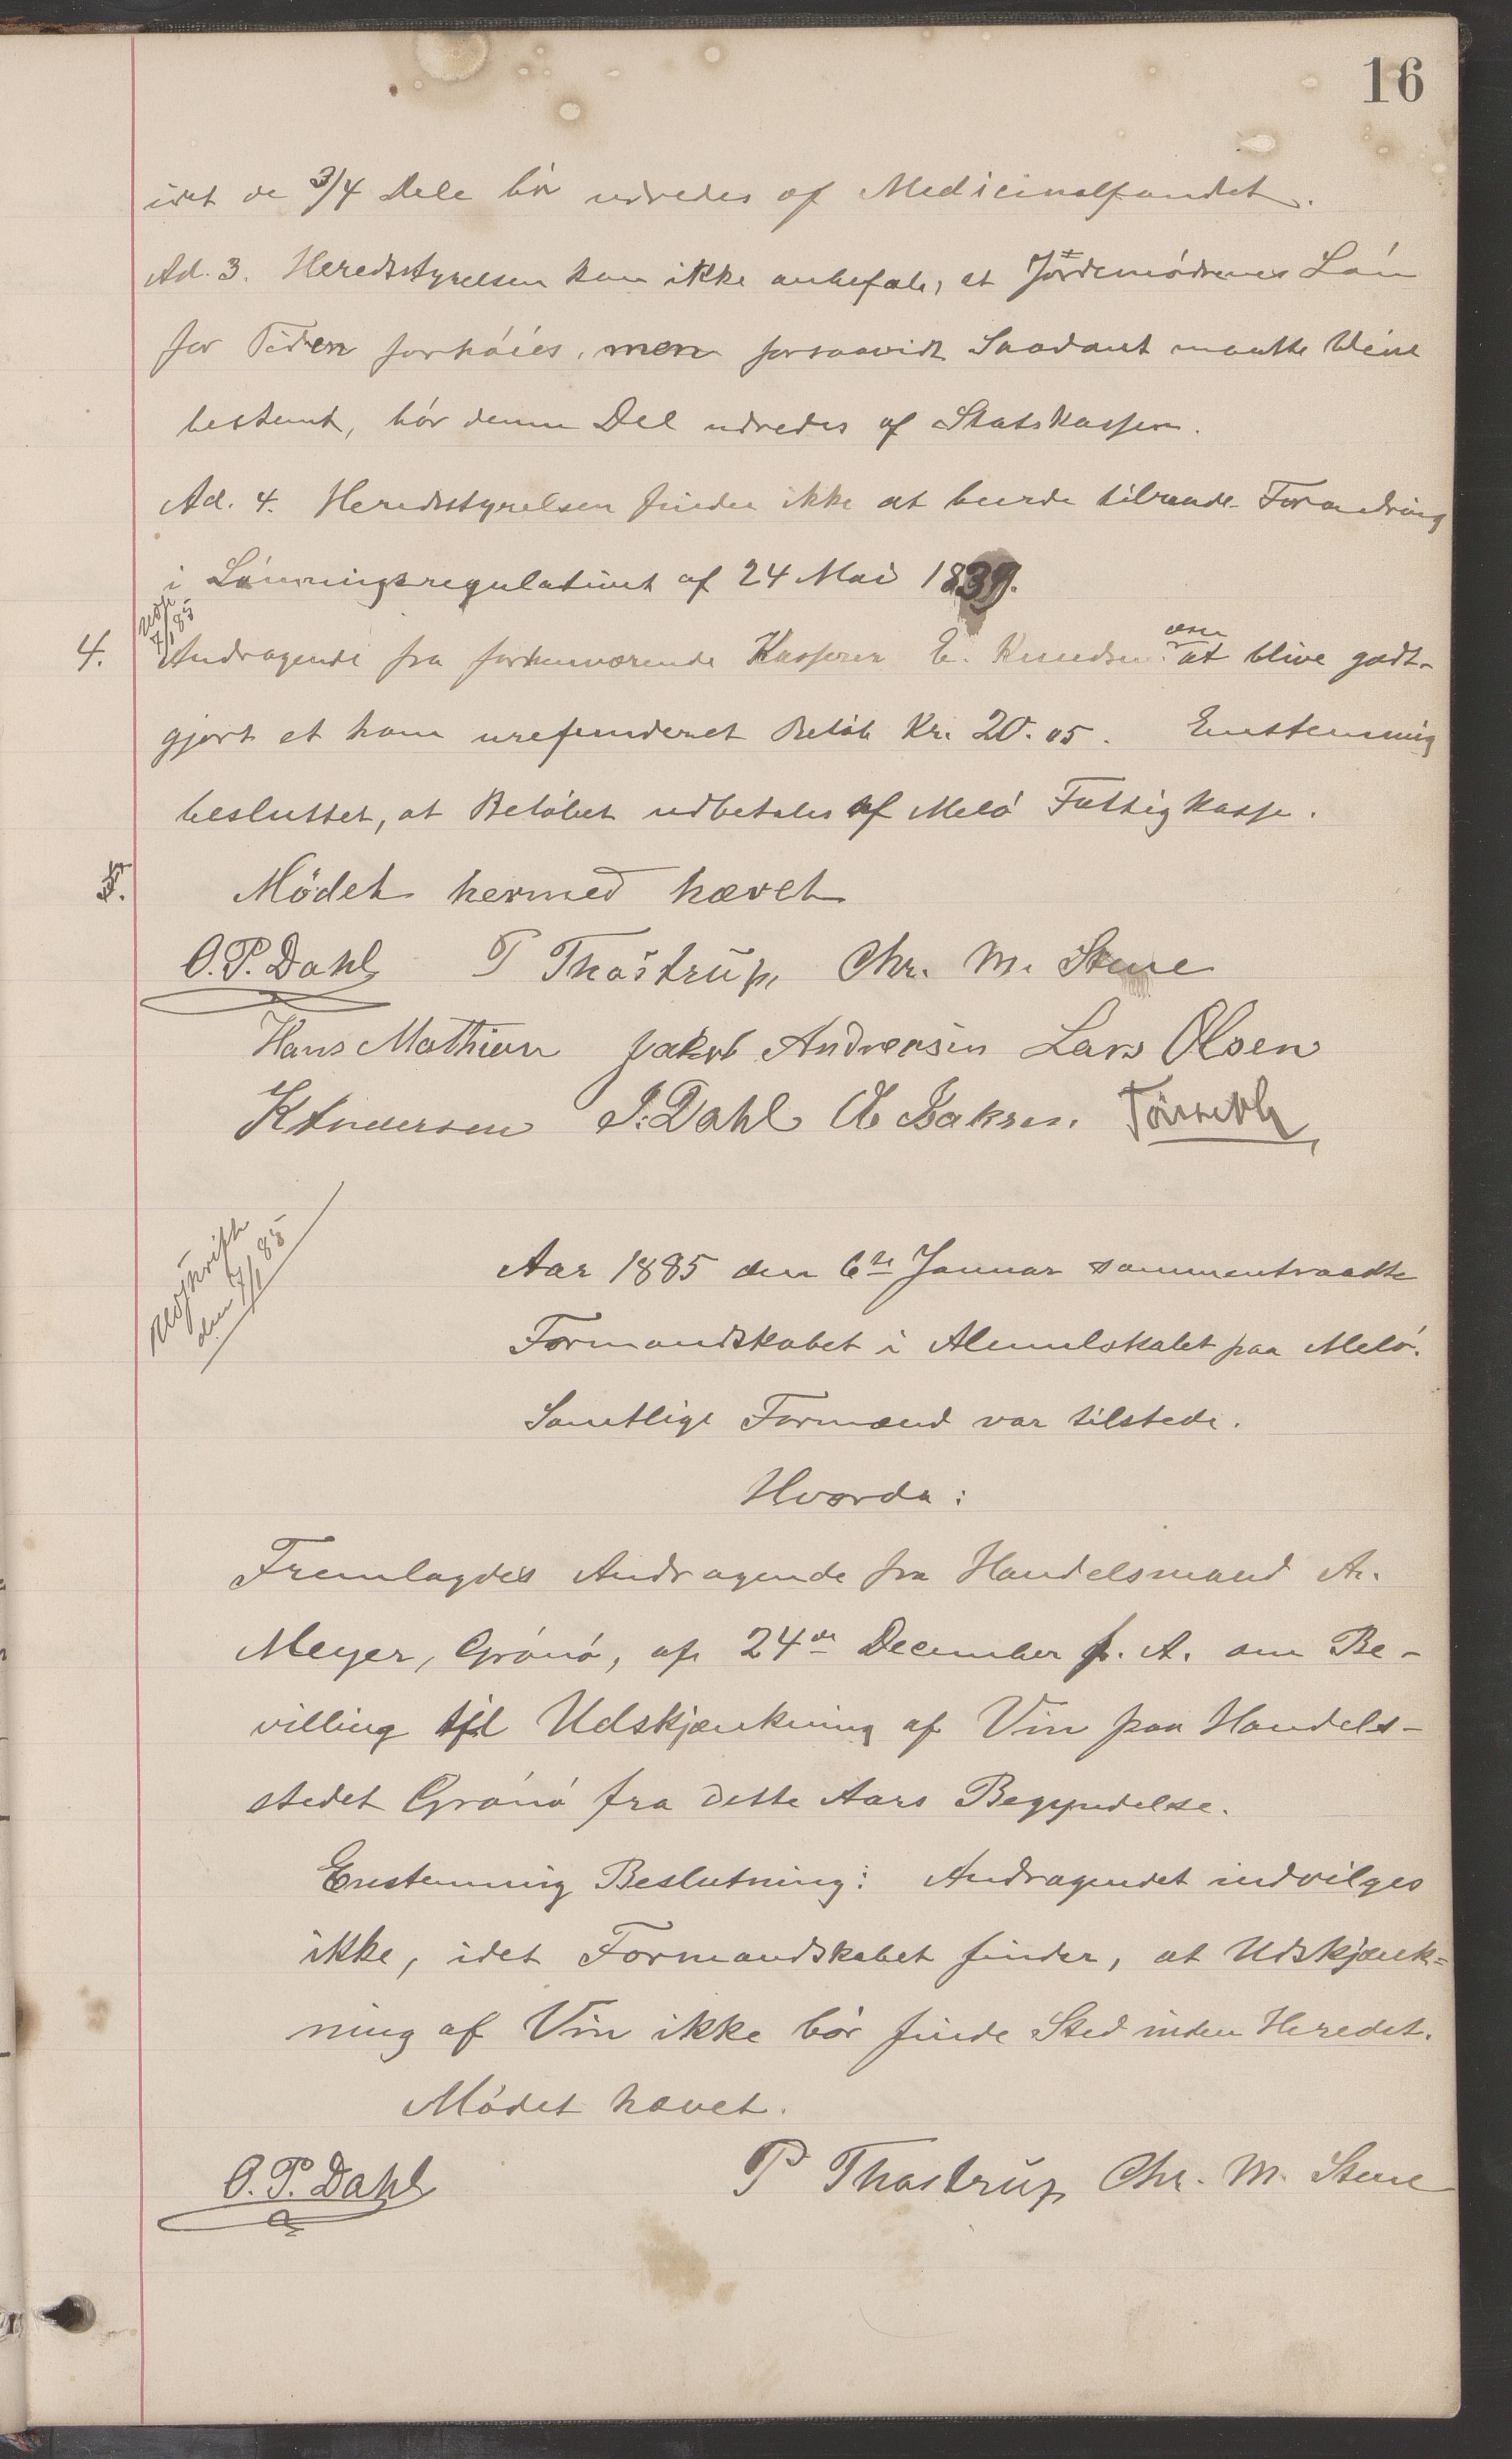 16
idet de 3/4 Dele bör udredes af Medicinalfondet.
Ad. 3. Heredsstyrelsen kan ikke anbefale, at Jordemödrenes Lön
for Tiden forhöies, men forsaavidt Saadant maatte blive
bestemt, bör denne Del udredes af Statskassen.
Ad. 4. Heredsstyrelsen finder ikke at burde tilraade Forandring
i Lönningsregulativet af 24 Mai 1839.
7/1 85
4. Andragende fra forhenværende Kasserer E. Knudsen om at blive godt-
gjort et ham urefunderet Belöb Kr. 20.05. Enstemmig
besluttet, at Belöbet udbetales af Melö Fattigkasse.
5. Mödet hermed hævet
O. P. Dahl P Thostrup Chr. M. Stene
Hans Mathisen Jakob Andreasen Lars Olsen
K Andersen J. Dahl E Isaksen.
Udskrift
den 7/1 85
Aar 1885 den 6te Januar sammentraadte
Formandskabet i Almenlokalet paa Melö.
Samtlige Formænd var tilstede.
Hvorda:
Fremlagdes Andragende fra Handelsmand A.
Meyer, Grönö, af 24de December f. A. om Be-
villing til Udskjænkning af Vin paa Handels-
stedet Grönö fra dette Aars Begyndelse.
Enstemmig Beslutning: Andragendet indvilges
ikke, idet Formandskabet finder, at Udskjænk=
ning af Vin ikke bör finde Sted inden Heredet.
Mödet hævet.
O. P. Dahl P Thostrup Chr. M. Stene